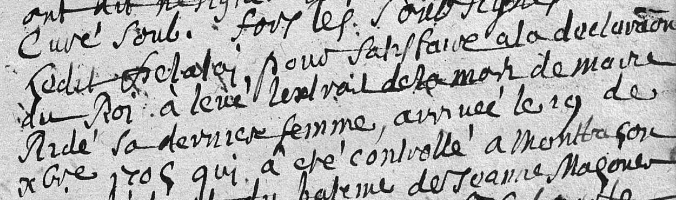 ont dit
Curé soub. fors les soubsignes
ledit pour satisfaire a la declaraon
du Roi. à levé lextrait de la mort de marie
Ridé sa derniere femme, arrivée le 19 de
xbre 1705 qui. à eté controllé à Montbason
du bateme de Jeanne Magoner